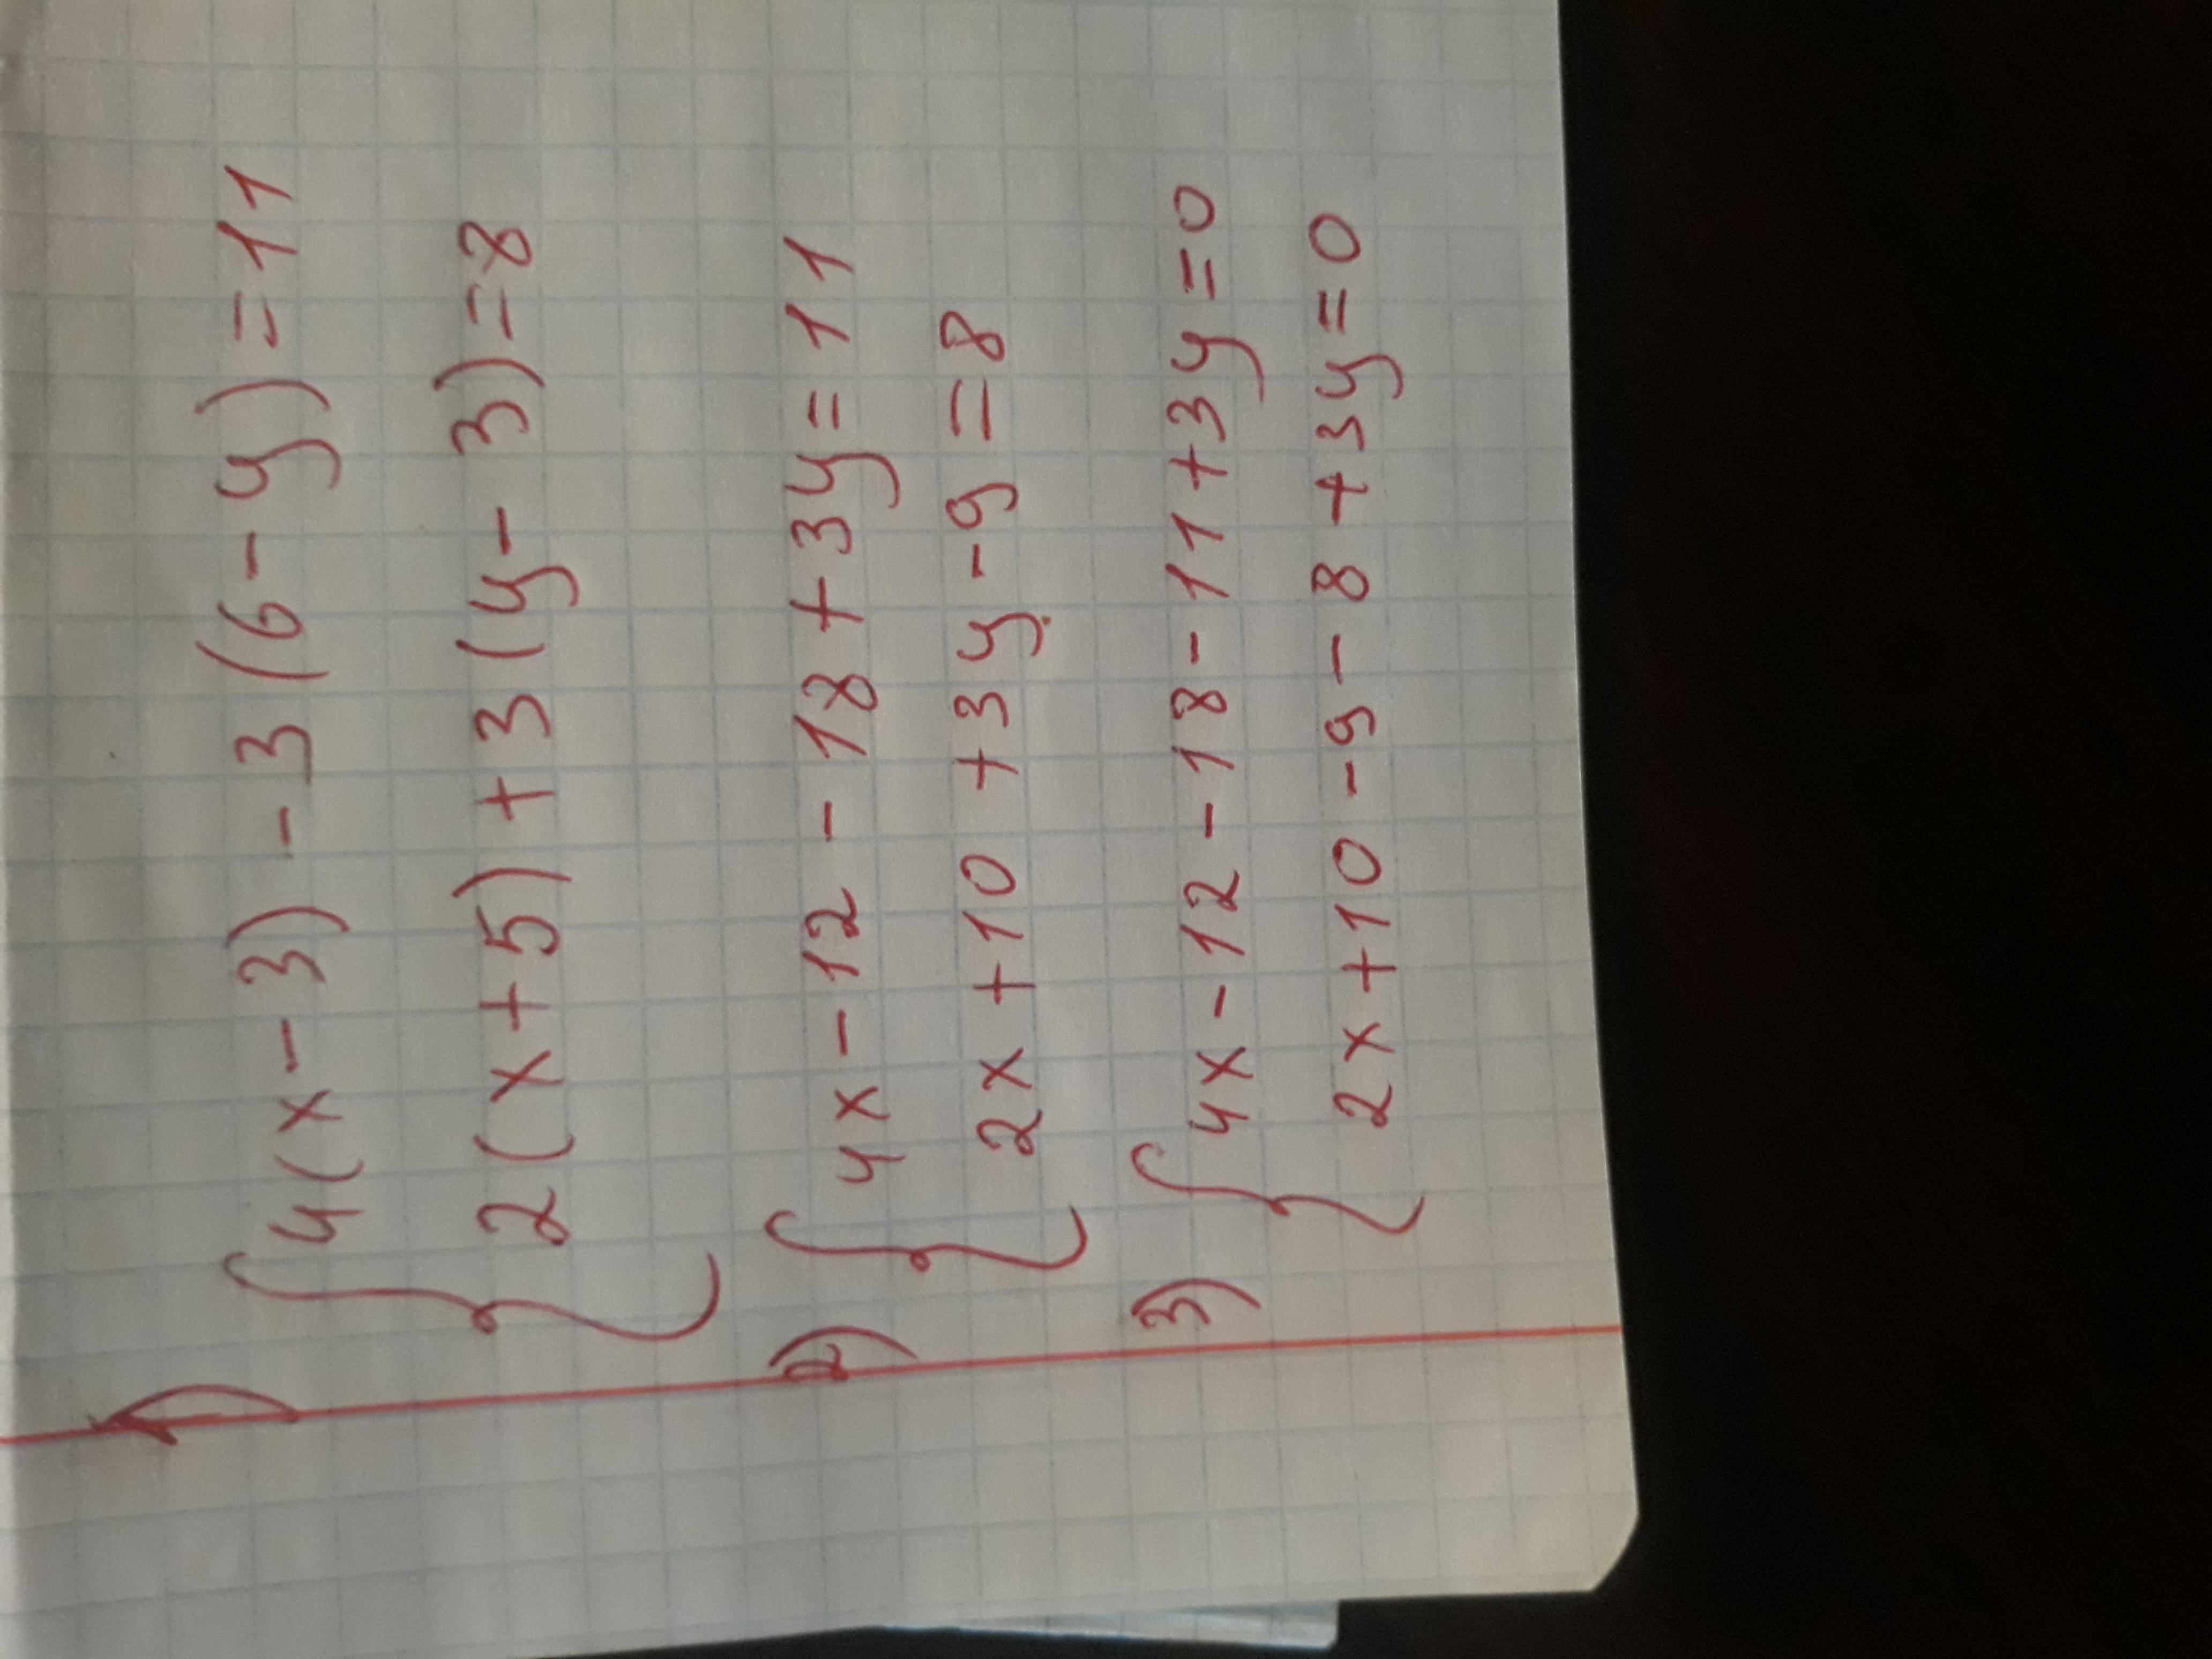 1)
{ 4(x-3) - 3(6-y) = 11
2(x+5) + 3(y-3) = 8
2) { 4x - 12 - 18 + 3y = 11
2x + 10 + 3y - 9 = 8
3) { 4x - 12 - 18 - 11 + 3y = 0
2x + 10 - 9 - 8 + 3y = 0